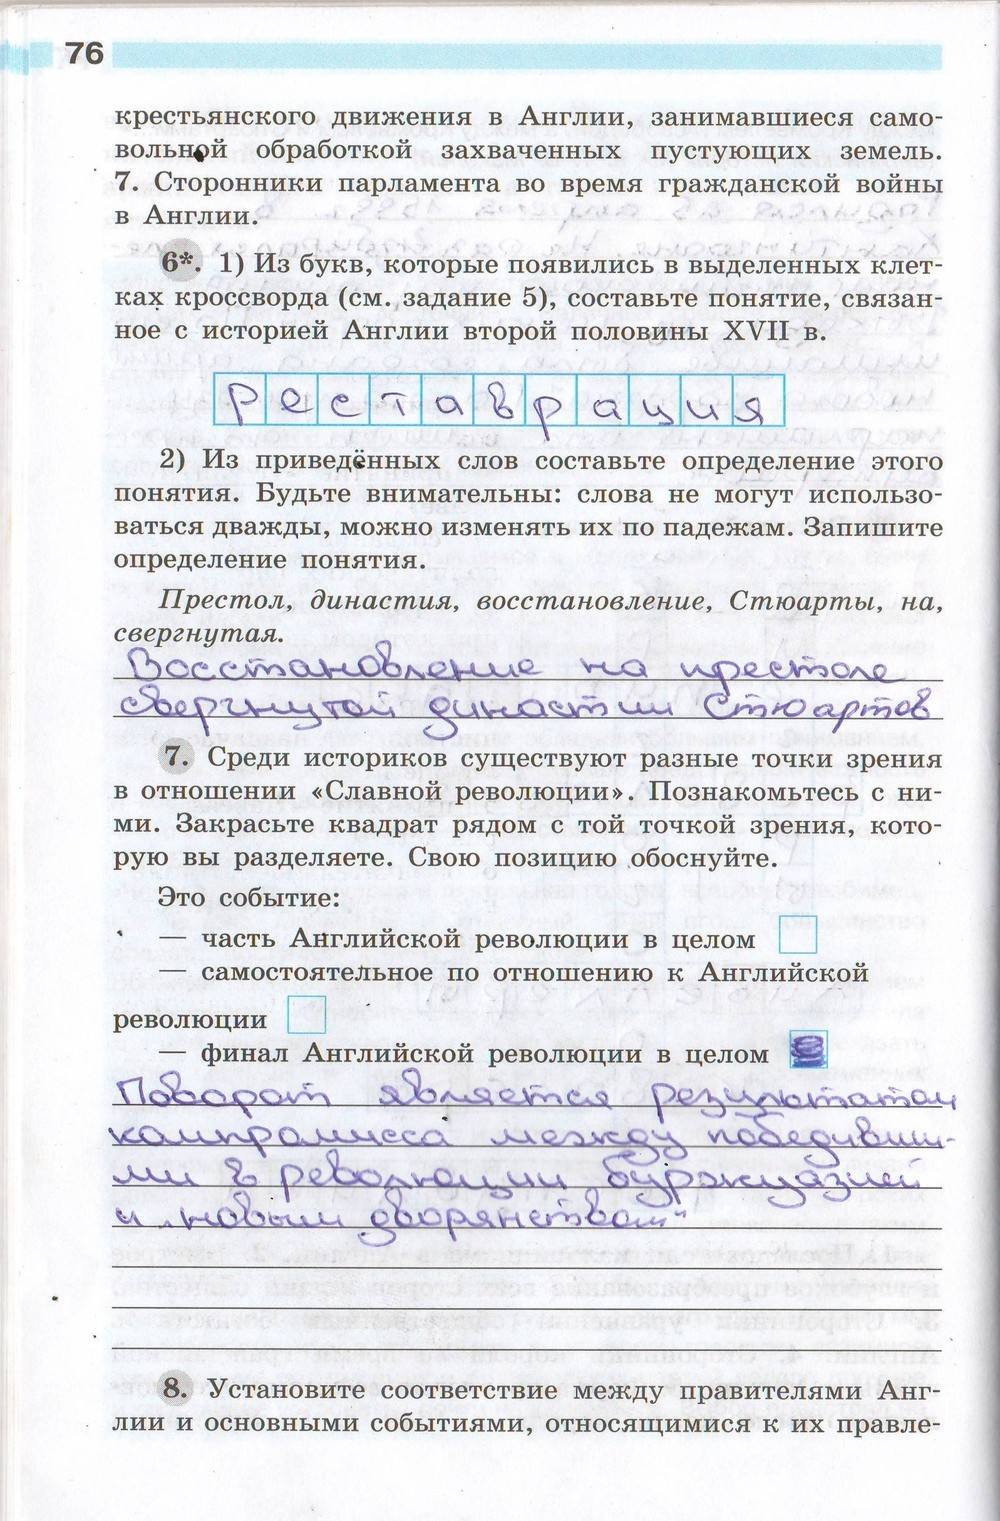 76
крестьянского движения в Англии, занимавшиеся само-
вольной обработкой захваченных пустующих земель.
7. Сторонники парламента во время гражданской войны
в Англии.
6*. 1) Из букв, которые появились в выделенных клет-
ках кроссворда (см. задание 5), составьте понятие, связан-
ное с историей Англии второй половины XVII в.
реставрация
2) Из приведённых слов составьте определение этого
понятия. Будьте внимательны: слова не могут использо-
ваться дважды, можно изменять их по падежам. Запишите
определение понятия.
Престол, династия, восстановление, Стюарты, на,
свергнутая.
Восстановление на престоле
свергнутой династии Стюартов
7. Среди историков существуют разные точки зрения
в отношении «Славной революции». Познакомьтесь с ни-
ми. Закрасьте квадрат рядом с той точкой зрения, кото-
рую вы разделяете. Свою позицию обоснуйте.
Это событие:
— часть Английской революции в целом
— самостоятельное по отношению к Английской
революции
— финал Английской революции в целом
Поворот является результатом
компромисса между победивши-
ми в революции буржуазией
и "новым дворянством"
8. Установите соответствие между правителями Анг-
лии и основными событиями, относящимися к их правле-